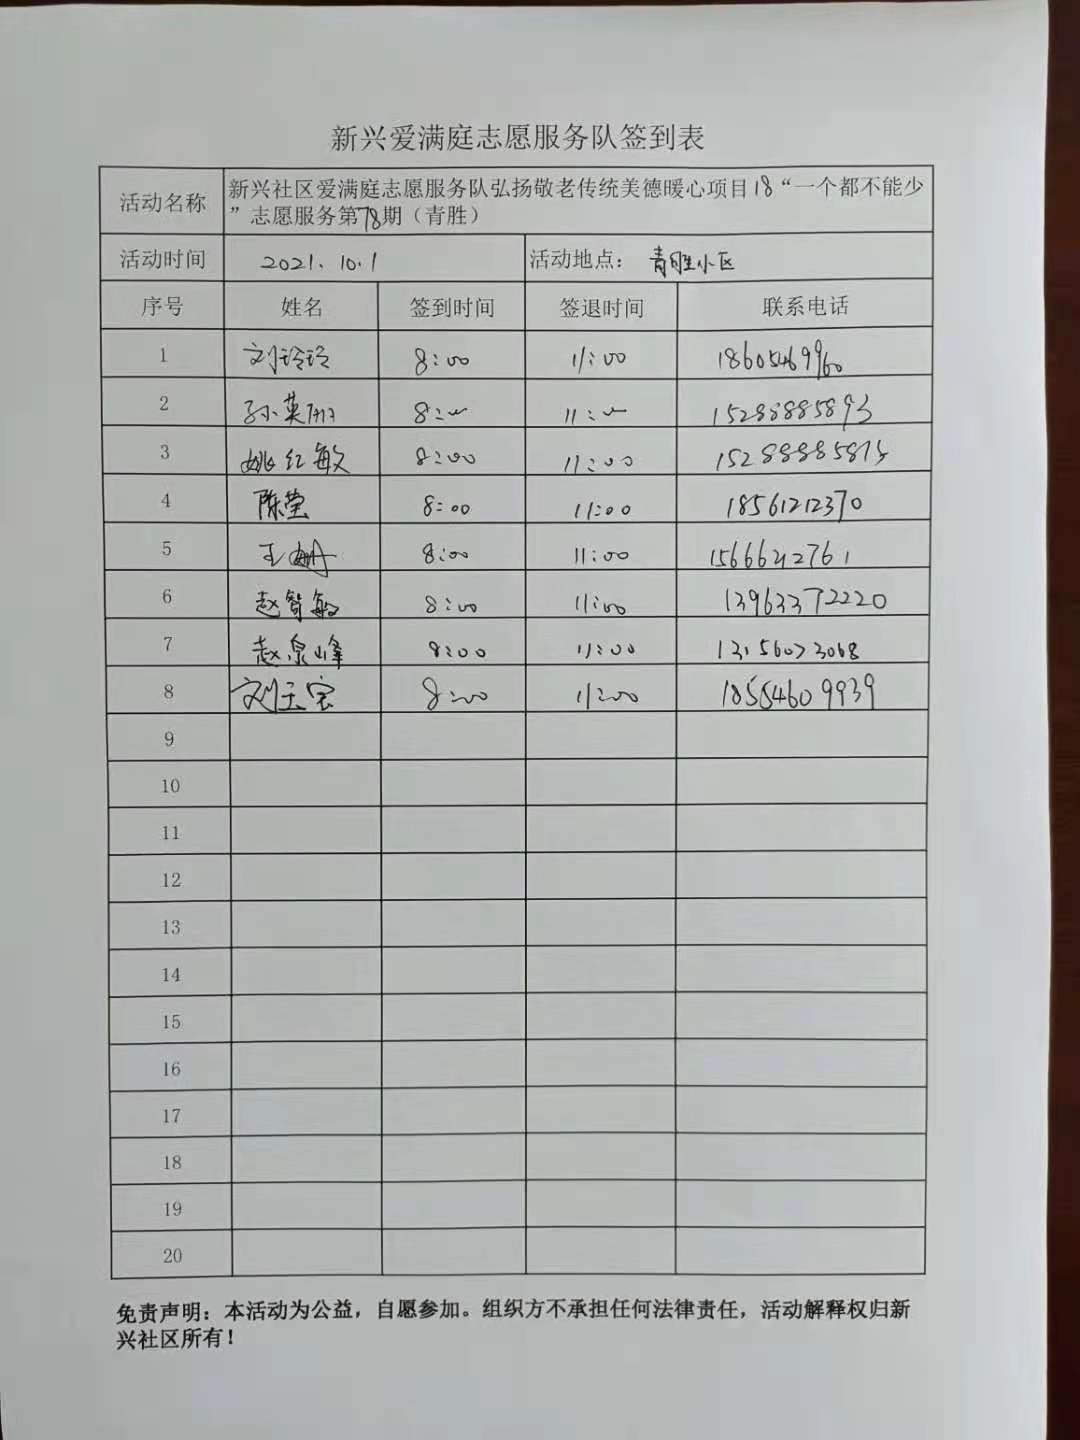 新兴爱满庭志愿服务队签到表
活动名称 新兴社区爱满庭志愿服务队弘扬敬老传统美德暖心项目18“一个都不能少
”志愿服务第78期（青胜）
活动时间 2021.10.1 活动地点： 青胜小区
序号 姓名 签到时间 签退时间 联系电话
1 刘玲玲 8:00 11:00 18605469960
2 孙英丽 8:00 11:00 15288885893
3 姚红敏 8:00 11:00 15288885875
4 陈莹 8:00 11:00 18561212370
5 王姗 8:00 11:00 15666212761
6 赵智敏 8:00 11:00 13963372220
7 赵泉峰 8:00 11:00
8 刘玉宝 8:00 11:00 18554609939
9
10
11
12
13
14
15
16
17
18
19
20
免责声明：本活动为公益，自愿参加。组织方不承担任何法律责任，活动解释权归新
兴社区所有！